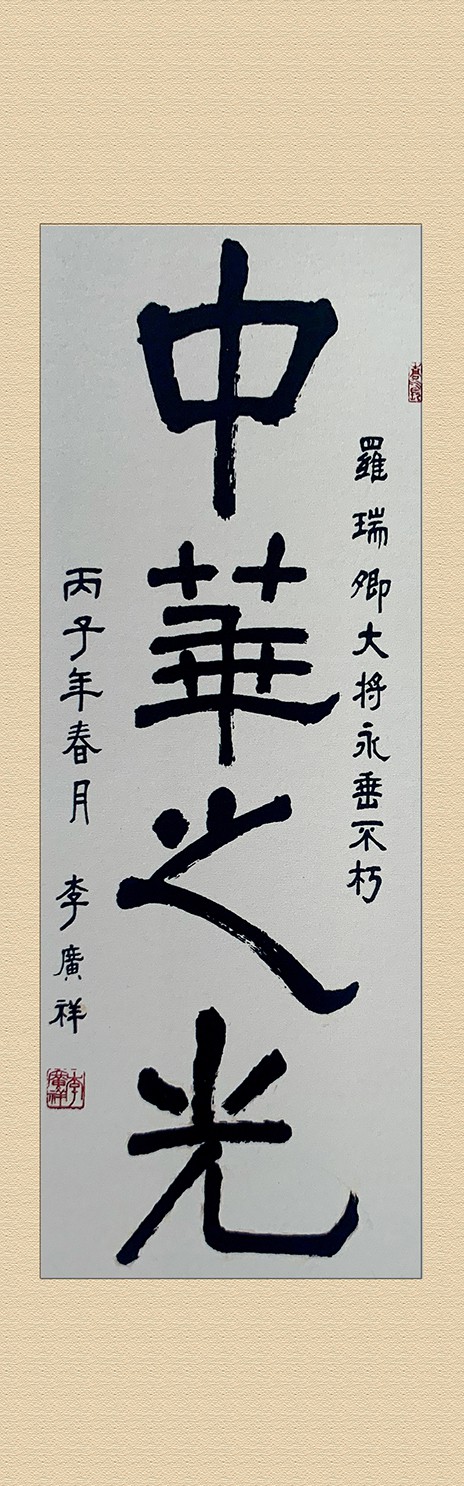 羅瑞卿大将永垂不朽
中華之光
丙子年春月 李廣祥
李廣祥